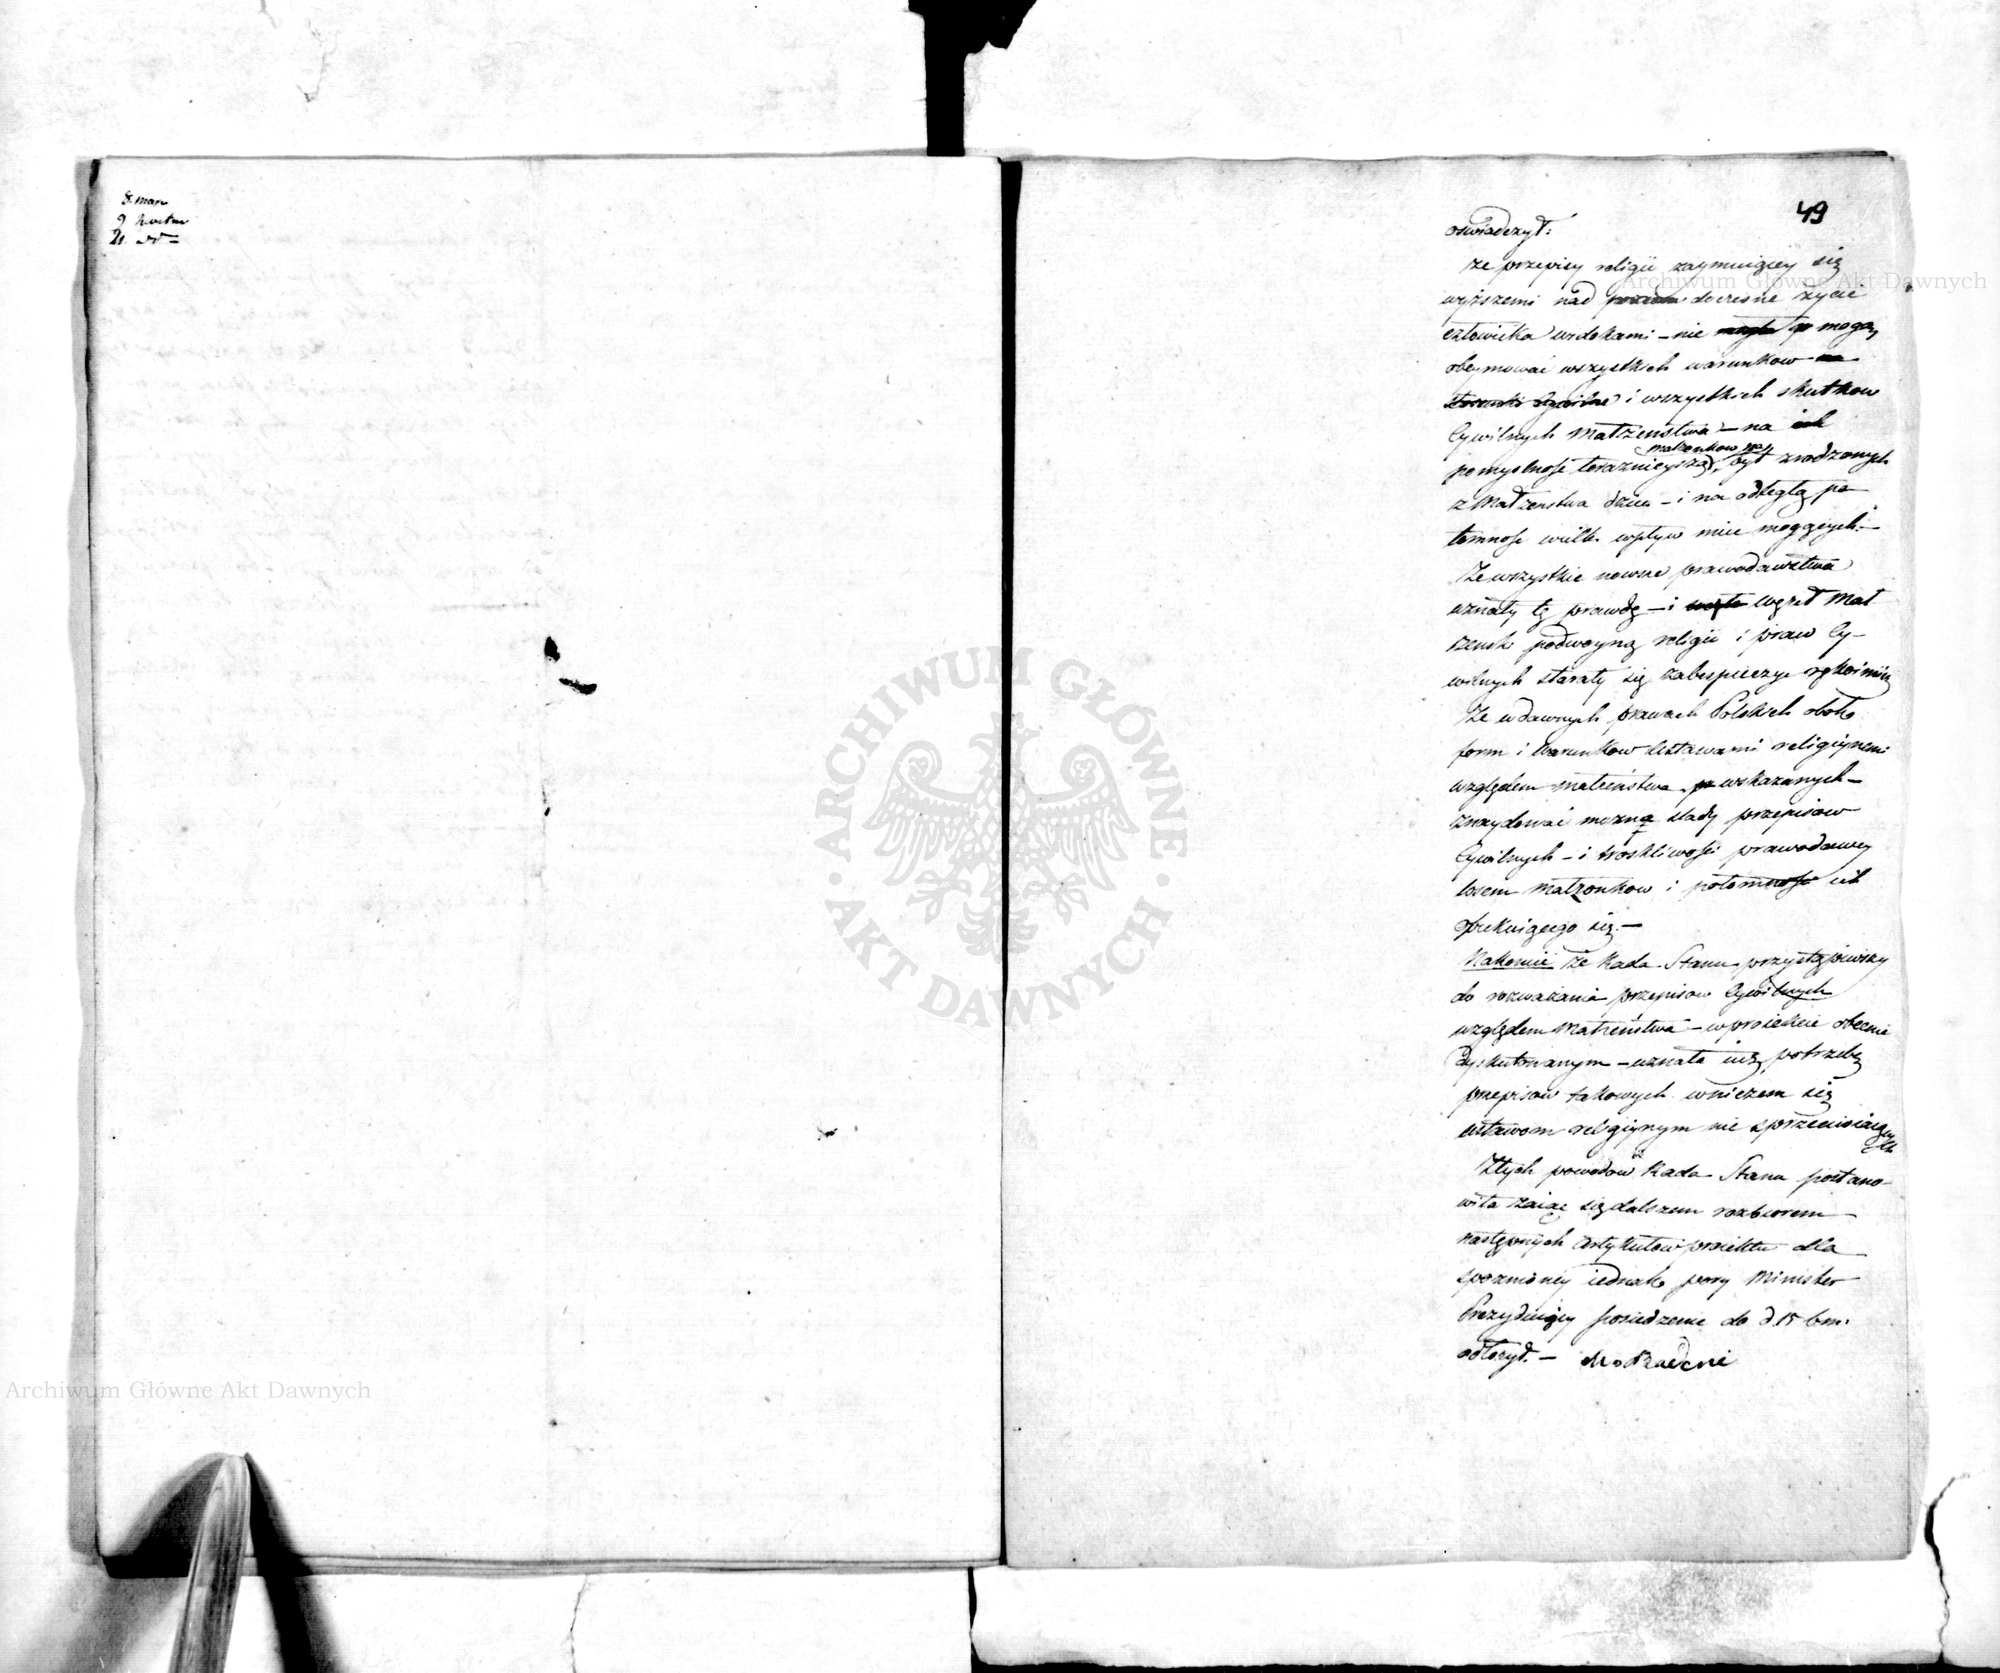 8. mar
9 kwietn
21. dº
49
oswiadczył:
że przepisy religii zaymuiącey się
wyższemi nad doczesne życie
człowieka widokami – nie mogą
obeymować wszystkich warunkow
i wszystkich skutkow
Cywilnych Małżenstwa – na
małżonkow
pomyslność teraznieyszą, byt zrodzonych
z Małżenstwa dzieci – i na odległą po
tomność wielki wpływ mieć mogących. –
Że wszystkie nowsze prawodawstwa
uznały tę prawdę – i węzeł Mał
żenski podwoyną religii i praw Cy-
wilnych starały się zabespieczyć rękoimią
Że w dawnych prawach Polskich obok
form i warunkow Ustawami religiynemi
względem małżeństwa wskazanych –
znaydować można slady przepisow
Cywilnych – i troskliwości prawodawcy
losem Małżonkow i potomności ich
opiekuiącego się. –
Nakoniec że Rada Stanu przystąpiwszy
do rozważania przepisow Cywilnych
względem Małżeństwa – w proiekcie obecnie
dyskutowanym – uznała iuż potrzebę
przepisow takowych w niczem się
ustawom religiynym nie sprzeciwiaiących
Z tych powodow Rada Stanu postano-
wiła zaiąć się dalszem rozbiorem
następnych Artykułow proiektu dla
spoznioney iednak pory Minister
Prezyduiący posiedzenie do d. 15 b.m.
odłożył. –